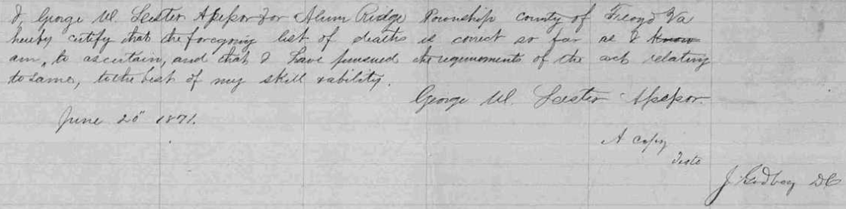 I, George W. Lester Assessor for Alum Ridge Township county of Floyd Va
hereby certify that the foregoing list of deaths is correct so far as I know
am, to ascertain, and that I have pursued the requirements of the act relating
to same, to the best of my skill & ability.
George W. Lester Assessor.
June 20" 1871.
A Copy
Teste
J Godbey DC